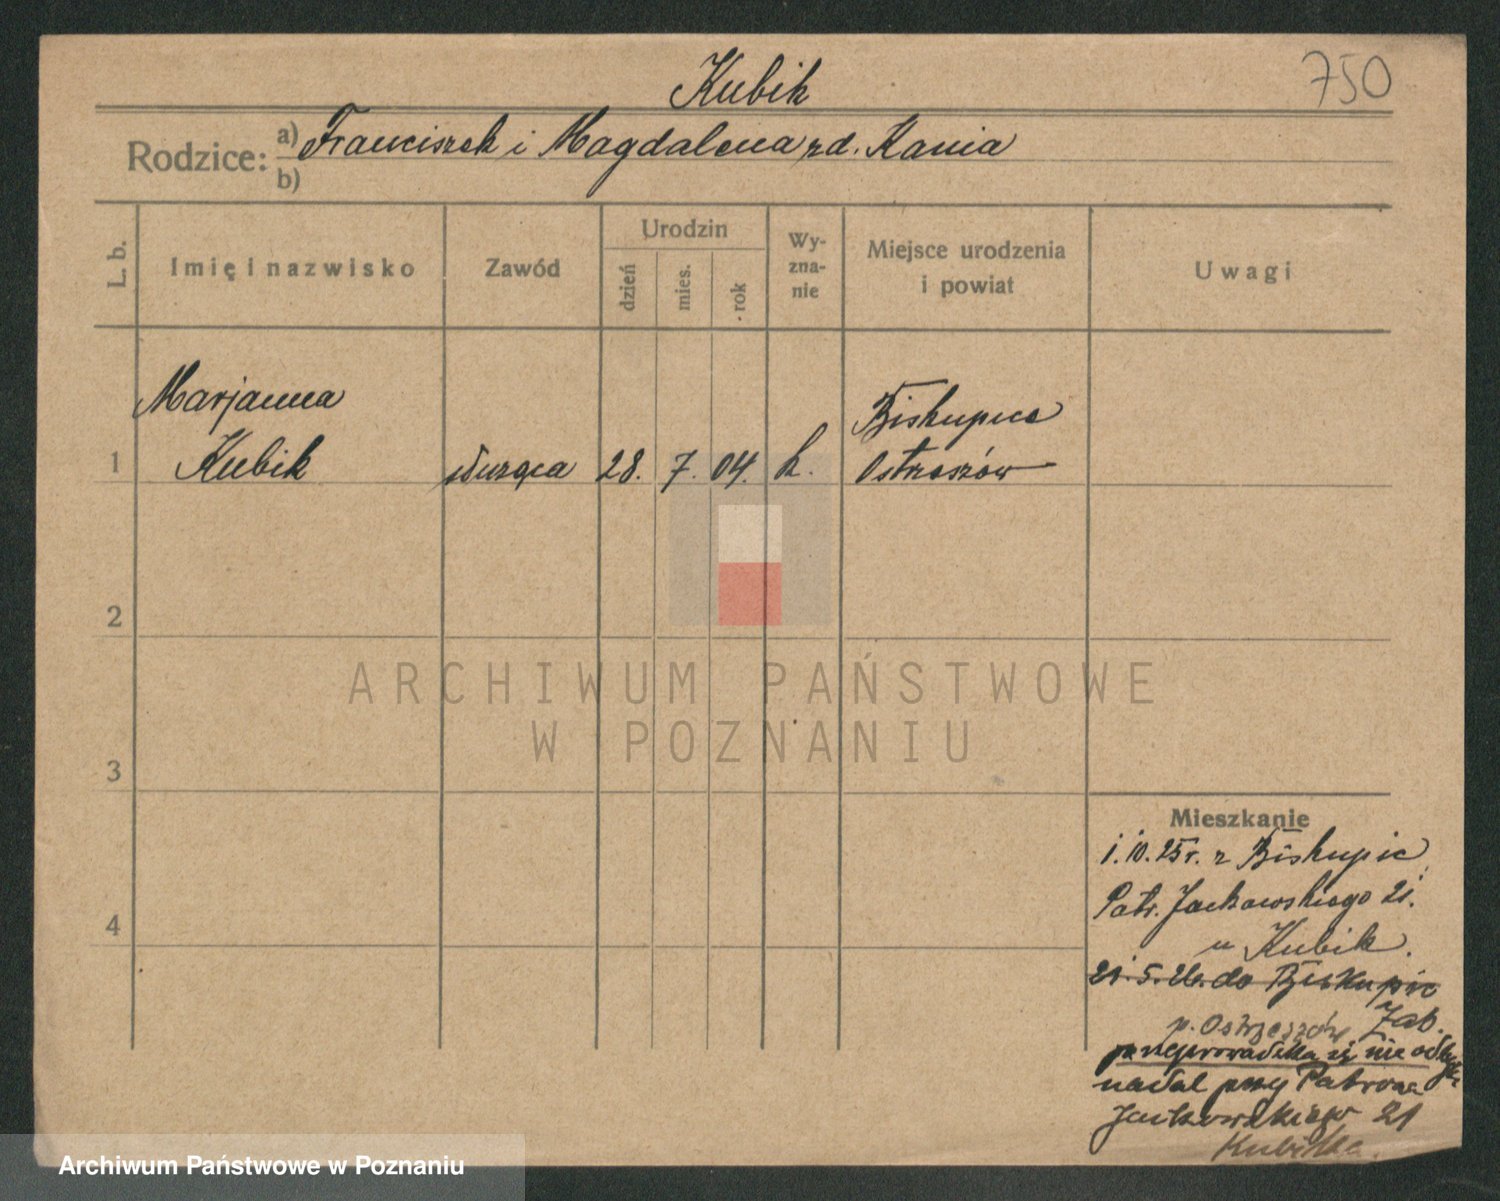 Kubik
750
Rodzice: a) Franciszek i Magdalena zd. Kania
b)
L. b.
Imię i nazwisko
Zawód
Urodzin
dzień
mies.
rok
Wy-
zna-
nie
Miejsce urodzenia
i powiat
Uwagi
Marjanna
Biskupice
1 Kubik służąca 28. 7. 04. k. Ostrzeszów
2
3
4
ARCHIWUM PAŃSTWOWE
W POZNANIU
Mieszkanie
1.10.25 r. z Biskupic
Patr. Jackowskiego 21.
u Kubik.
21.5.26. do Biskupic
p. Ostrzeszów
przeprowadzka się nie
nadal przy Patrona
Jackowskiego 21
Archiwum Państwowe w Poznaniu